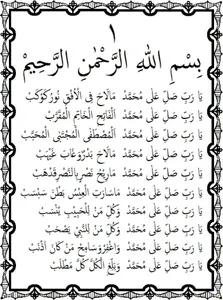 ١
بِسْمِ اللهِ الرَّحْمٰنِ الرَّحِيْمِ
يَا رَبِّ صَلِّ عَلَى مُحَمَّدْ مَا لَاحَ فِي الْأُفْقِ نُوْرُ كَوْكَبْ
يَا رَبِّ صَلِّ عَلَى مُحَمَّدْ الْفَاتِحِ الْخَاتِمِ الْمُقَرَّبْ
يَا رَبِّ صَلِّ عَلَى مُحَمَّدْ الْمُصْطَفَى الْمُجْتَبَى الْمُحَبَّبْ
يَا رَبِّ صَلِّ عَلَى مُحَمَّدْ مَا لَاحَ بَدْرٌ وَغَابَ غَيْهَبْ
يَا رَبِّ صَلِّ عَلَى مُحَمَّدْ مَا رِيْحُ نَصْرٍ بِالنَّصْرِ قَدْ هَبْ
يَا رَبِّ صَلِّ عَلَى مُحَمَّدْ مَا سَارَتِ الْعِيْسُ بَطْنَ سَبْسَبْ
يَا رَبِّ صَلِّ عَلَى مُحَمَّدْ وَكُلِّ مَنْ لِلْحَبِيْبِ يُنْسَبْ
يَا رَبِّ صَلِّ عَلَى مُحَمَّدْ وَكُلِّ مَنْ لِلنَّبِيِّ يَصْحَبْ
يَا رَبِّ صَلِّ عَلَى مُحَمَّدْ وَاغْفِرْ وَسَامِحْ مَنْ كَانَ أَذْنَبْ
يَا رَبِّ صَلِّ عَلَى مُحَمَّدْ وَبَلِّغِ الْكُلَّ كُلَّ مَطْلَبْ